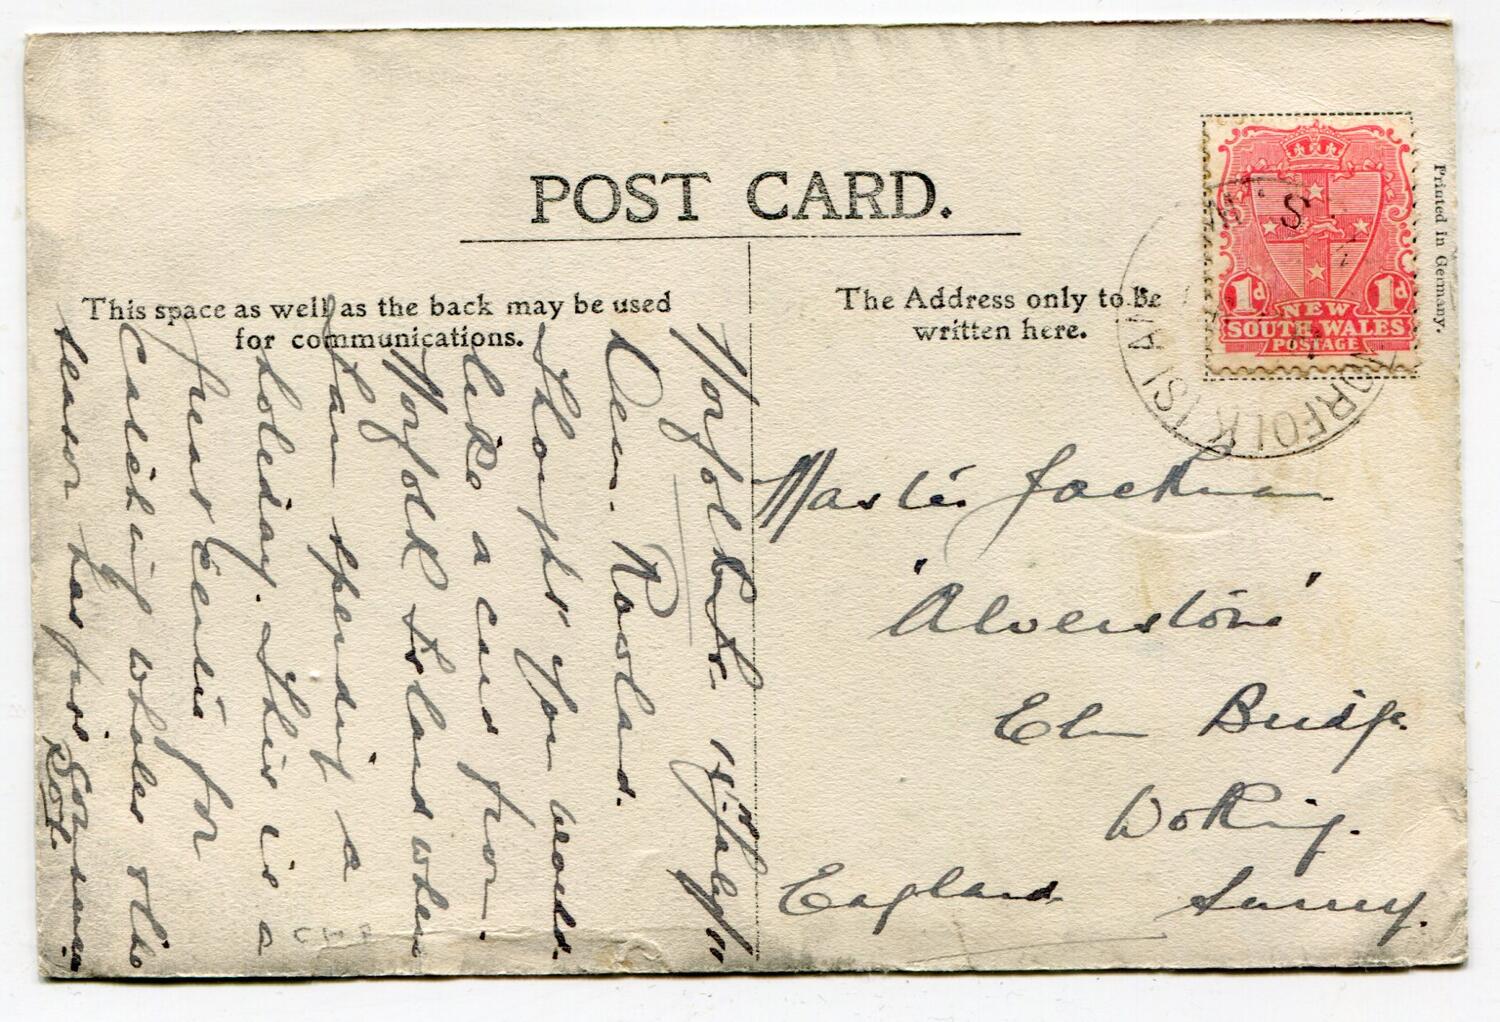 POST CARD.
This space as well as the back may be used
for communications.
The Address only to be
written here.
Printed in Germany.
1d 1d
NEW
SOUTH WALES
POSTAGE
NORFOLK ISLAND
Norfolk Is. 18th July/11
Dear Rowland.
I thought you would
like a card from
Norfolk Island where
I am spending a
holiday. This is a
great centre for
catching whales & the
season has just
Master Jackman
'Alverstone'
Elm Bridge.
Woking.
England Surrey.